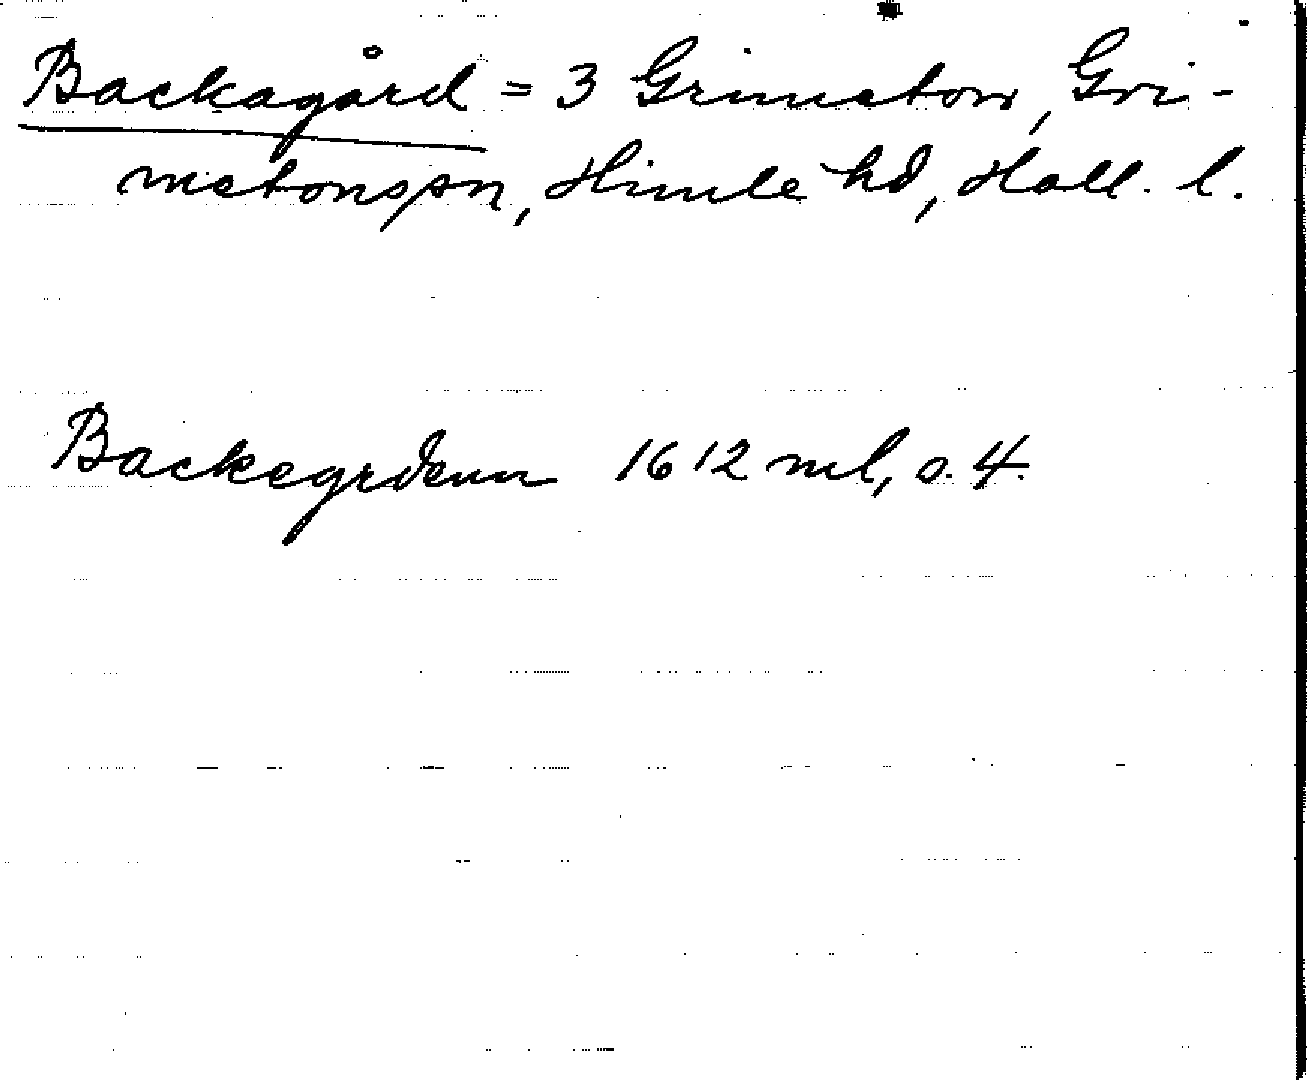 Backagård = 3 Grimeton, Gri-
metonssn, Himle hd, Hall. l.
Backegrdenn 1612 ml, s. 4.